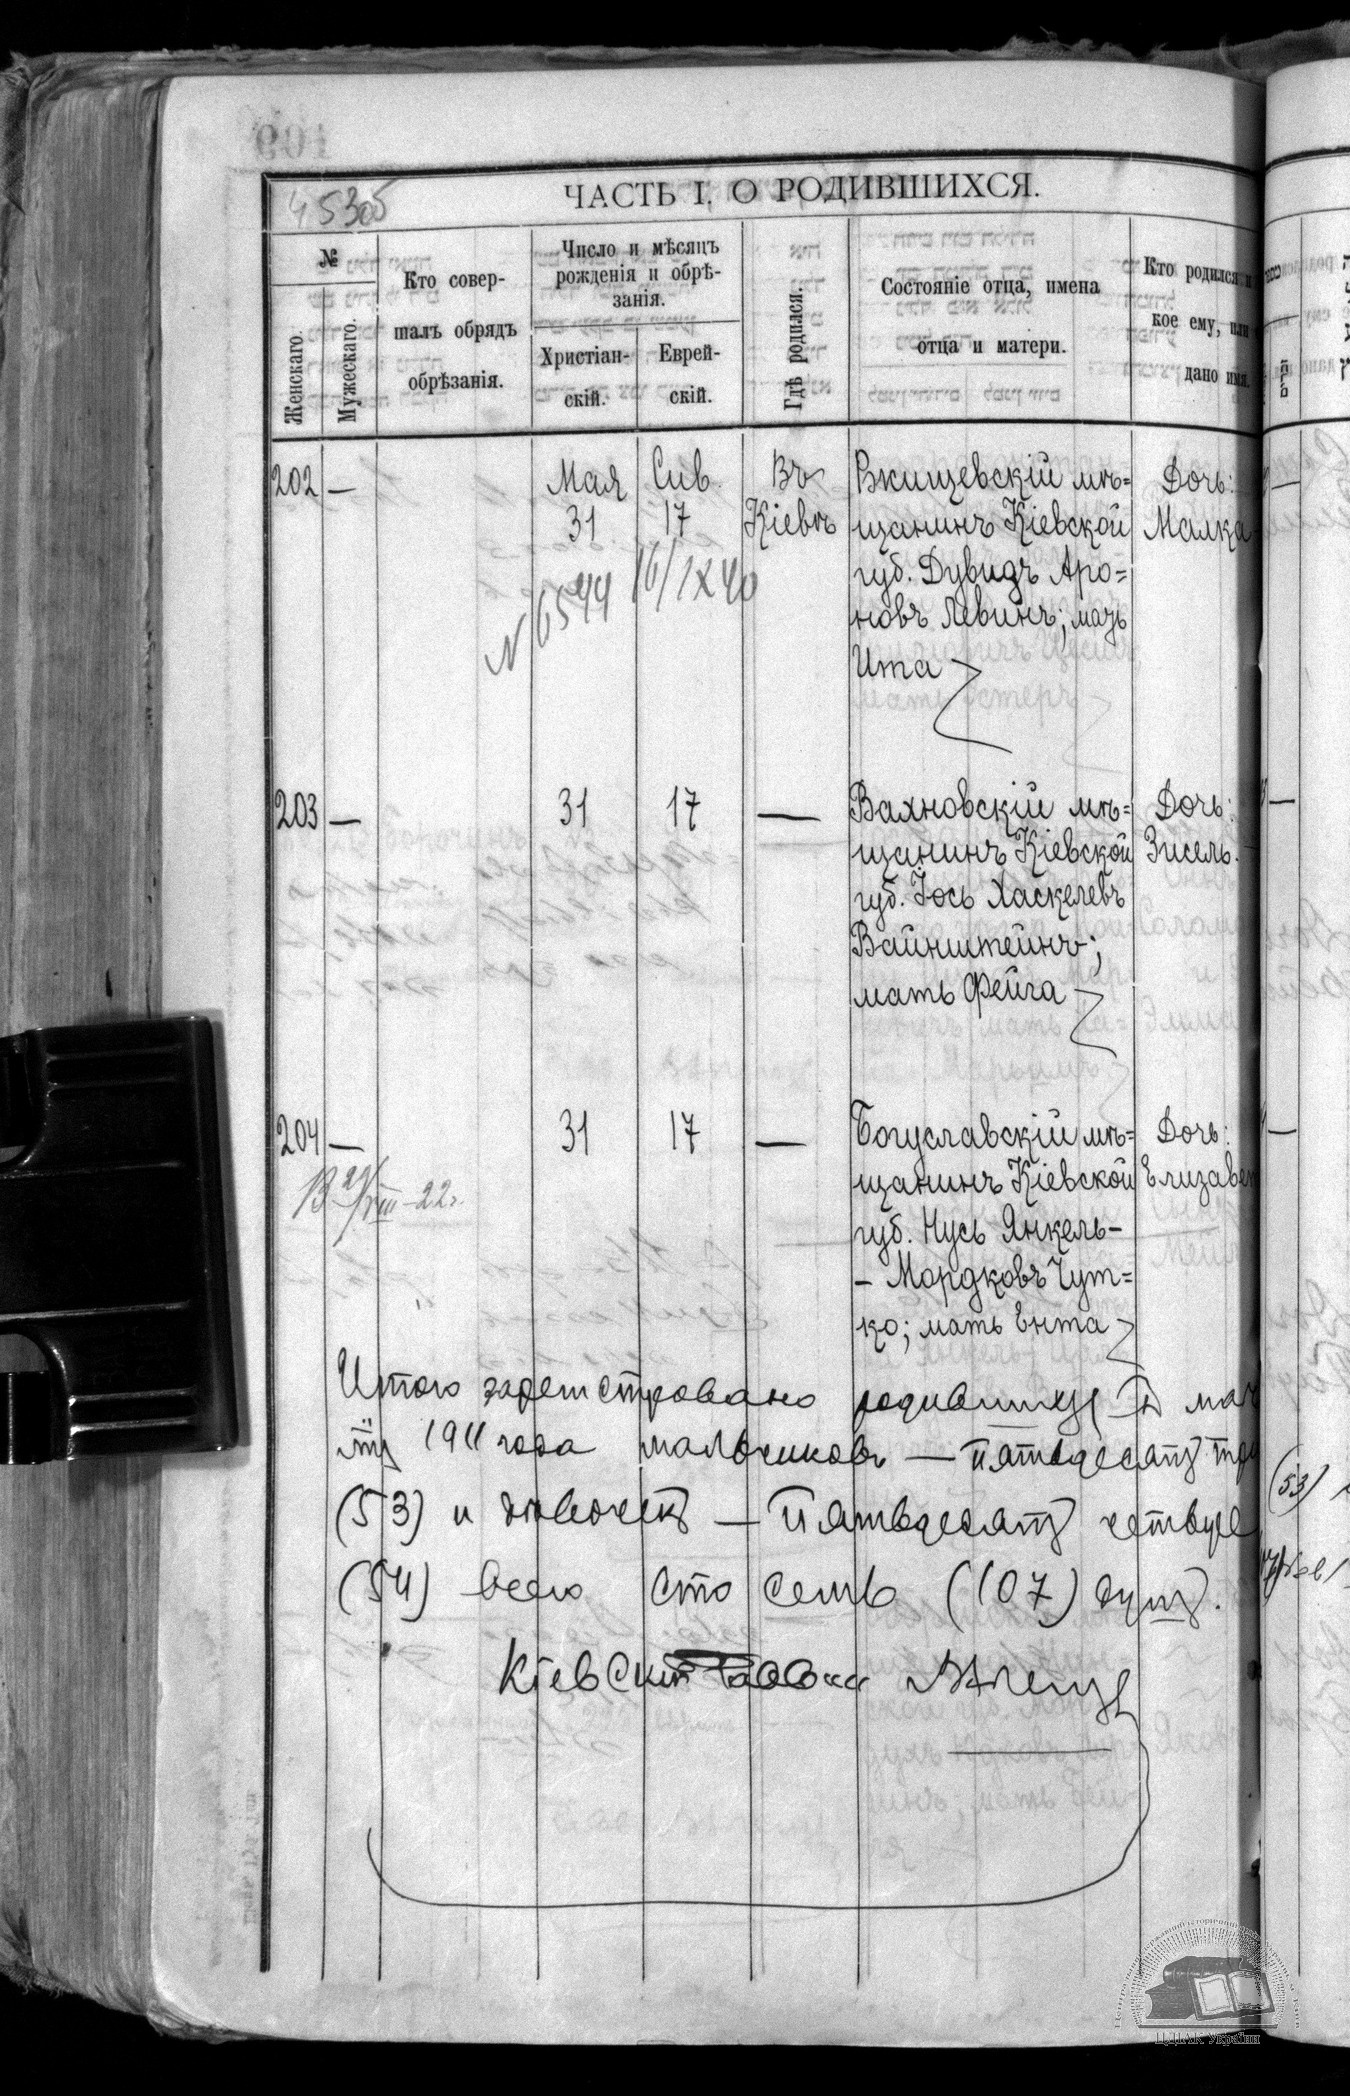 453об
ЧАСТЬ I, О РОДИВШИХСЯ.
№
Женскаго.
Мужескаго.
Кто совер-
шалъ обрядъ
обрѣзанія.
Число и мѣсяцъ
рожденія и обрѣ-
занія.
Христіан-
скій.
Еврей-
скій.
Гдѣ родился.
Состояніе отца, имена
отца и матери.
Кто родился и
кое ему, или
дано имя.
202 — Мая 31 Сив. 17 Въ Кіевѣ
Ржищевскій мѣ=
щанинъ Кіевской
губ. Дувидъ Аро=
новъ Левинъ; мать
Ита
Дочь:
Малка
N 6544 16/IX 40
203 — 31 17 —
Вахновскій мѣ=
щанинъ Кіевской
губ. Іось Хаскелевъ
Вайнштейнъ;
мать Фейга
Дочь:
Зисель.
204 — 31 17 —
Богуславскій мѣ=
щанинъ Кіевской
губ. Нусь Янкель-
- Мордковъ Чут=
ко; мать Ента
Дочь:
Елизавет
VIII-22г.
Итого зарегистровано родившихся въ маѣ
1911 года мальчиковъ — пятьдесятъ три
(53) и дѣвочекъ — пятьдесятъ четыре
(54) всего сто семь (107) душъ.
Кіевскій Раввинъ
(53)
ЦДІАК України